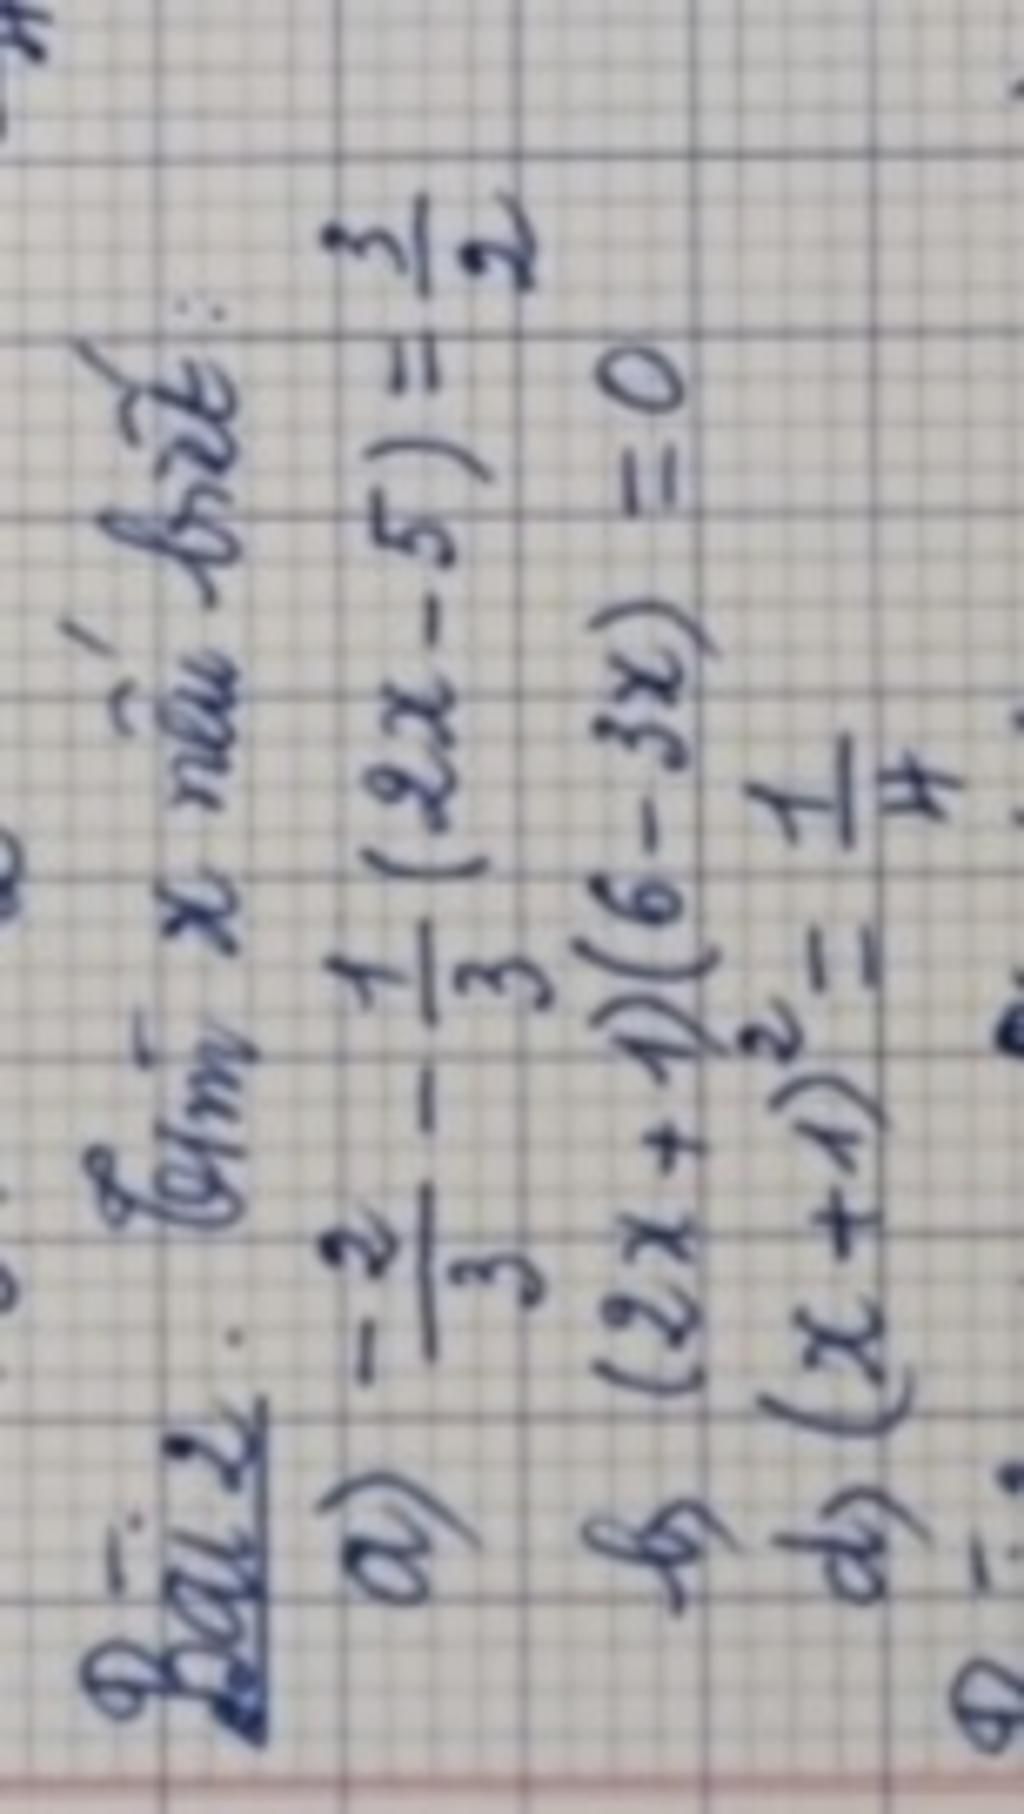 Bài 2. Tìm x nếu biết:
a) -2/3 - 1/3 (2x - 5) = 3/2
b) (2x + 1)(6 - 3x) = 0
d) (x + 1)² = 1/4